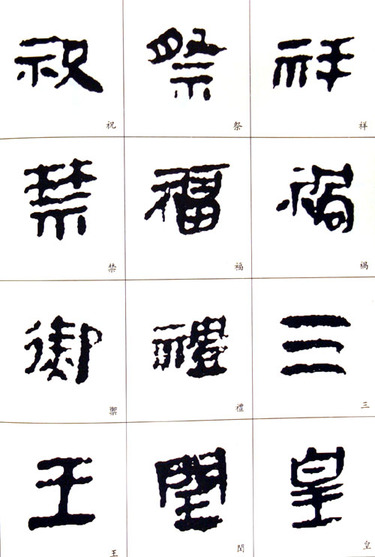 祝 祭 祥
祝 祭 祥
禁 福 禍
禁 福 禍
御 禮 三
禦 禮 三
王 閏 皇
王 閏 皇